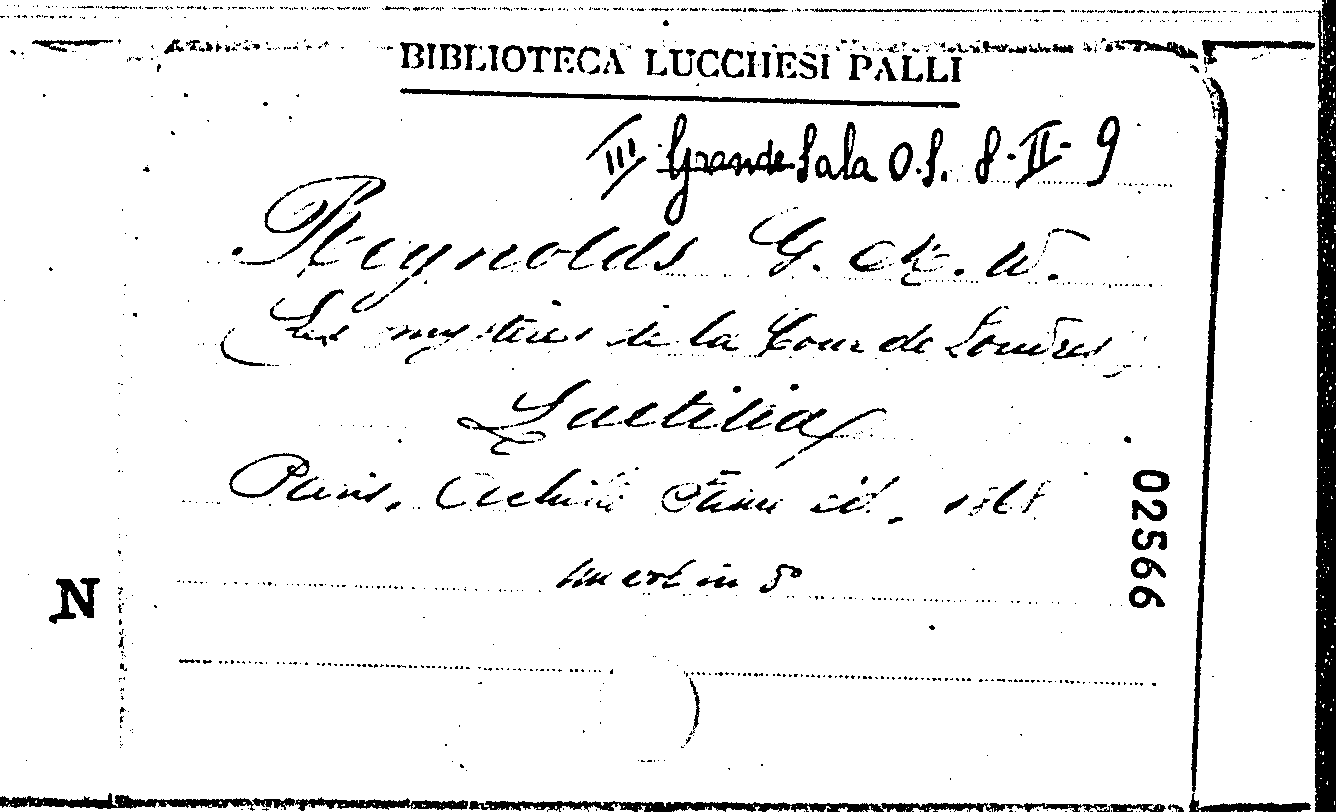 BIBLIOTECA LUCCHESI PALLI
III Grande Sala O.S. 8-II-9
Reynolds G. M. W.
Les mystères de la Cour de Londres,
Laetitia
Paris, Achille Faure éd., 1868
un vol in 8°
02566
N